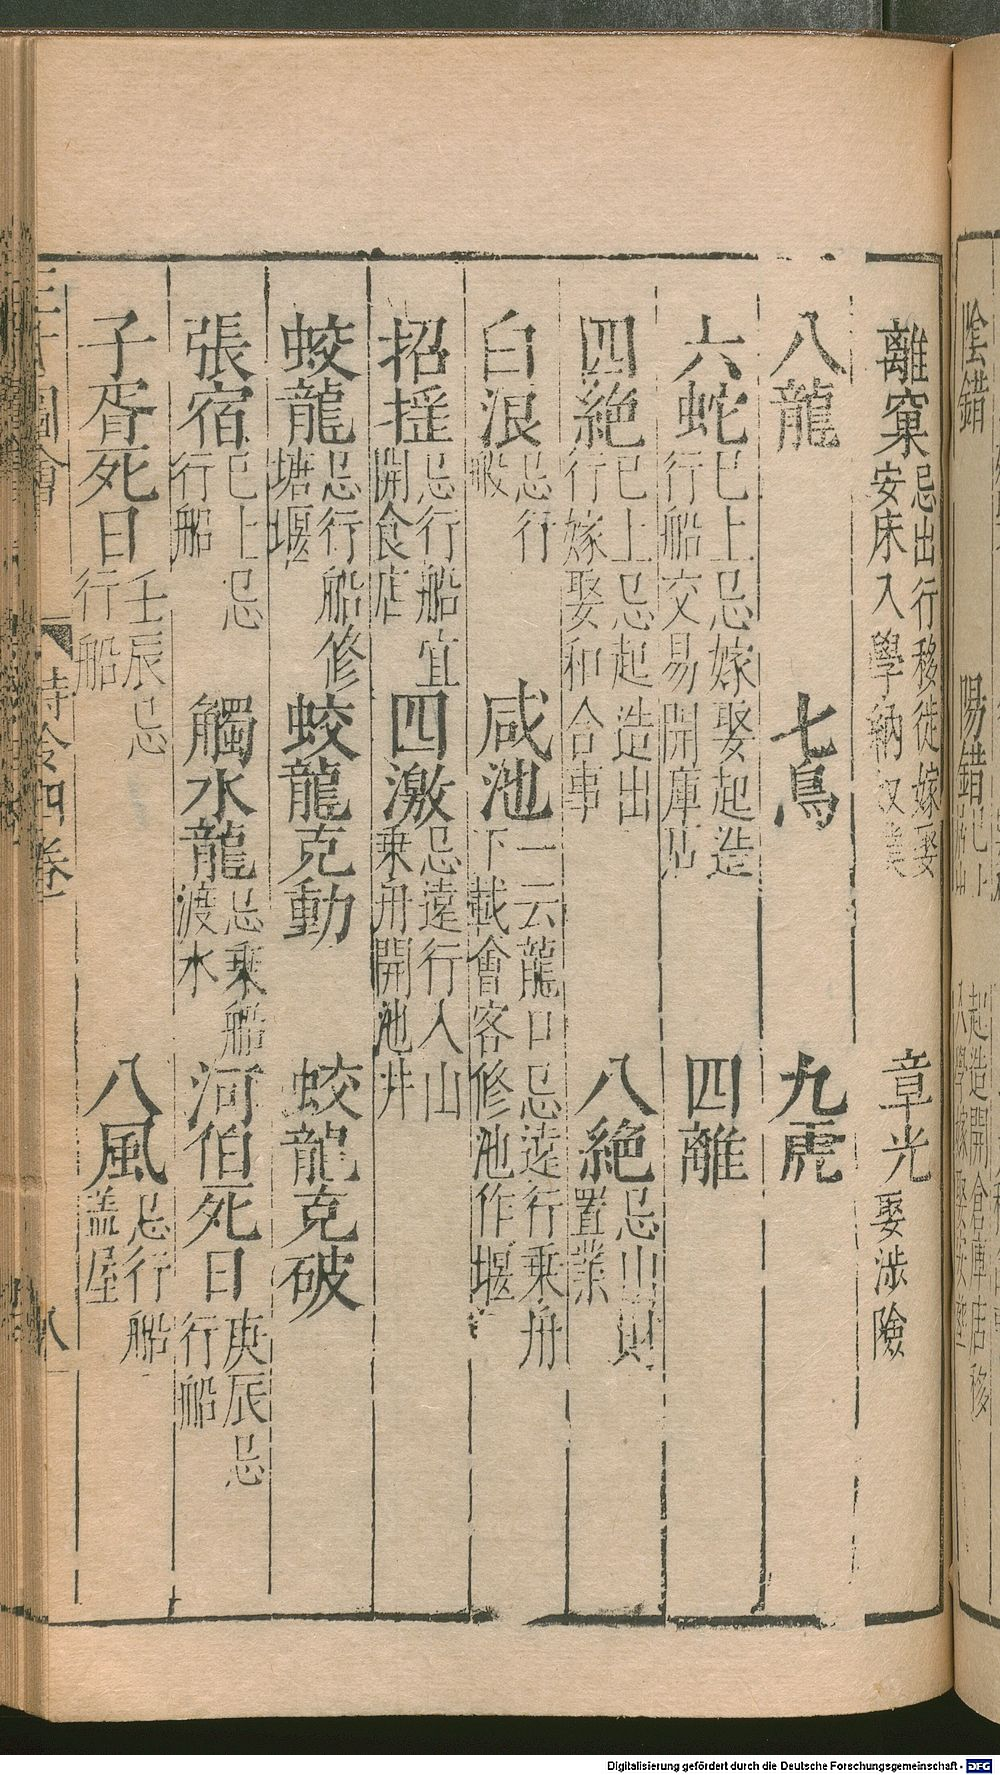 離窠忌出行移徙嫁娶安床入學納奴業 章光娶涉險
八龍 七鳥 九虎
六蛇巳上忌嫁娶起造行船交易開庫店 四離
四絕巳上忌起造出行嫁娶和合事 八絕忌出財置業
白浪忌行船 咸池一云龍口忌遠行乗舟下載會客修池作堰
招揺忌行船宜開食店 四激忌遠行入山乗舟開池井
蛟龍忌行船修塘堰 蛟龍克動 蛟龍克破
張宿巳上忌行船 觸水龍忌乗船渡水 河伯死日庚辰忌行船
子胥死日壬辰忌行船 八風忌行船蓋屋
三才圖會 時令四卷 八
陰錯 陽錯巳上
起造開倉庫店移
入學嫁娶安
Digitalisierung gefördert durch die Deutsche Forschungsgemeinschaft - DFG